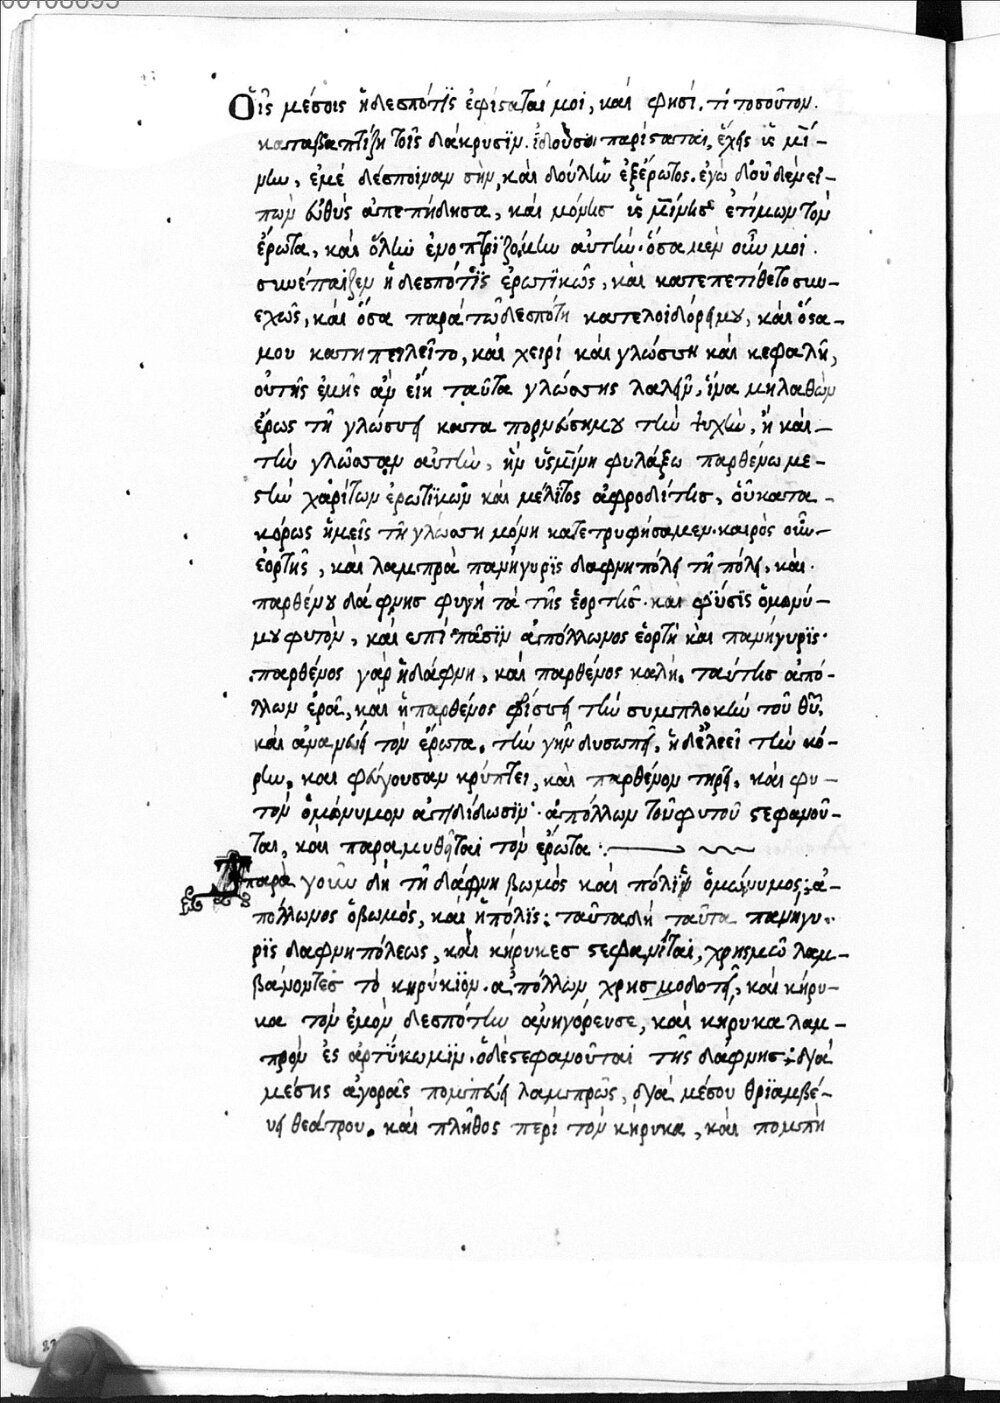 00108695
Οἷς μέσοις ἡ δεσπότις ἐφίσταταί μοι, καί φησί. τί τοσοῦτον
καταβαπτίζῃ τοῖς δάκρυσιν. ἰδού σοι παρίσταται, ἔχεις ὑσμί-
νην, ἐμὲ δέσποιναν σὴν, καὶ δούλην ἐξ ἔρωτος. ἐγὼ δ' οὐδὲν εἰ-
πὼν εὐθὺς ἀπεπήδησα, καὶ μόνης ὑσμίνης ἐτίμων τὸν
ἔρωτα, καὶ ὅλην ἐνοπτριζόμην αὐτήν. ὅσα μὲν οὖν μοι
συνέπαιζεν ἡ δεσπότις ἐρωτικῶς, καὶ κατεπετίθετο συν-
εχῶς, καὶ ὅσα παρὰ τῶ δεσπότῃ κατελοιδόρει μου, καὶ ὅσα
μου κατηπειλεῖτο, καὶ χειρὶ καὶ γλώσσῃ καὶ κεφαλῇ,
οὐ τῆς ἐμῆς ἂν εἴη ταῦτα γλώσσης λαλεῖν, ἵνα μὴ λαθὼν
ἔρως τῇ γλώσσῃ καταπορνεύσῃ μου τὴν ψυχὴν, ἢ καὶ
τὴν γλῶσσαν αὐτὴν, ἣν ὑσμίνῃ φυλάξω παρθένω με-
στὴν χαρίτων ἐρωτικῶν καὶ μέλιτος ἀφροδίτης, οὗ κατα-
κόρως ἡμεῖς τῇ γλώσσῃ μόνῃ κατετρυφήσαμεν. καιρὸς οὖν
ἑορτῆς, καὶ λαμπρὰ πανήγυρις δαφνηπόλει τῇ πόλει, καὶ
παρθένου δάφνης φυγὴ τὰ τῆς ἑορτῆς. καὶ φύσις ὁμωνύ-
μου φυτὸν, καὶ ἐπὶ πᾶσιν ἀπόλλωνος ἑορτὴ καὶ πανήγυρις.
παρθένος γὰρ ἡ δάφνη, καὶ παρθένος καλή. ταύτης ἀπό-
λλων ἐρᾶ, καὶ ἡ παρθένος φρίσσει τὴν συμπλοκὴν τοῦ θυ,
καὶ ἀναμένει τὸν ἔρωτα. τὴν γῆν δυσωπεῖ, ἡ δ' ἐλεεῖ τὴν κό-
ρην, καὶ φεύγουσαν κρύπτει, καὶ παρθένον τηρεῖ, καὶ φυ-
τὸν ὁμώνυμον ἀποδίδωσιν. ἀπόλλων τοῦ φυτοῦ στεφανοῦ-
ται, καὶ παραμυθεῖται τὸν ἔρωτα :
παρὰ γοῦν δὴ τῇ δάφνῃ βωμὸς καὶ πόλις ὁμώνυμος; ἀ-
πόλλωνος ὁ βωμὸς, καὶ ἡ πόλις: ταῦτα δὴ ταῦτα πανήγυ-
ρις δαφνηπόλεως, καὶ κήρυκες στεφανῖται, χρησμῶ λαμ-
βάνοντες τὸ κηρύκιον. ἀπόλλων χρησμοδοτεῖ, καὶ κήρυ-
κα τὸν ἐμὸν δεσπότην ἀνηγόρευσε, καὶ κήρυκα λαμ-
πρὸν ἐς ἀρτύκωμιν. ὁ δὲ στεφανοῦται τῆς δάφνης; διὰ
μέσης ἀγορᾶς πομπεύει λαμπρῶς, διὰ μέσου θριαμβέ-
υει θεάτρου. καὶ πλῆθος περὶ τὸν κήρυκα, καὶ πομπὴ